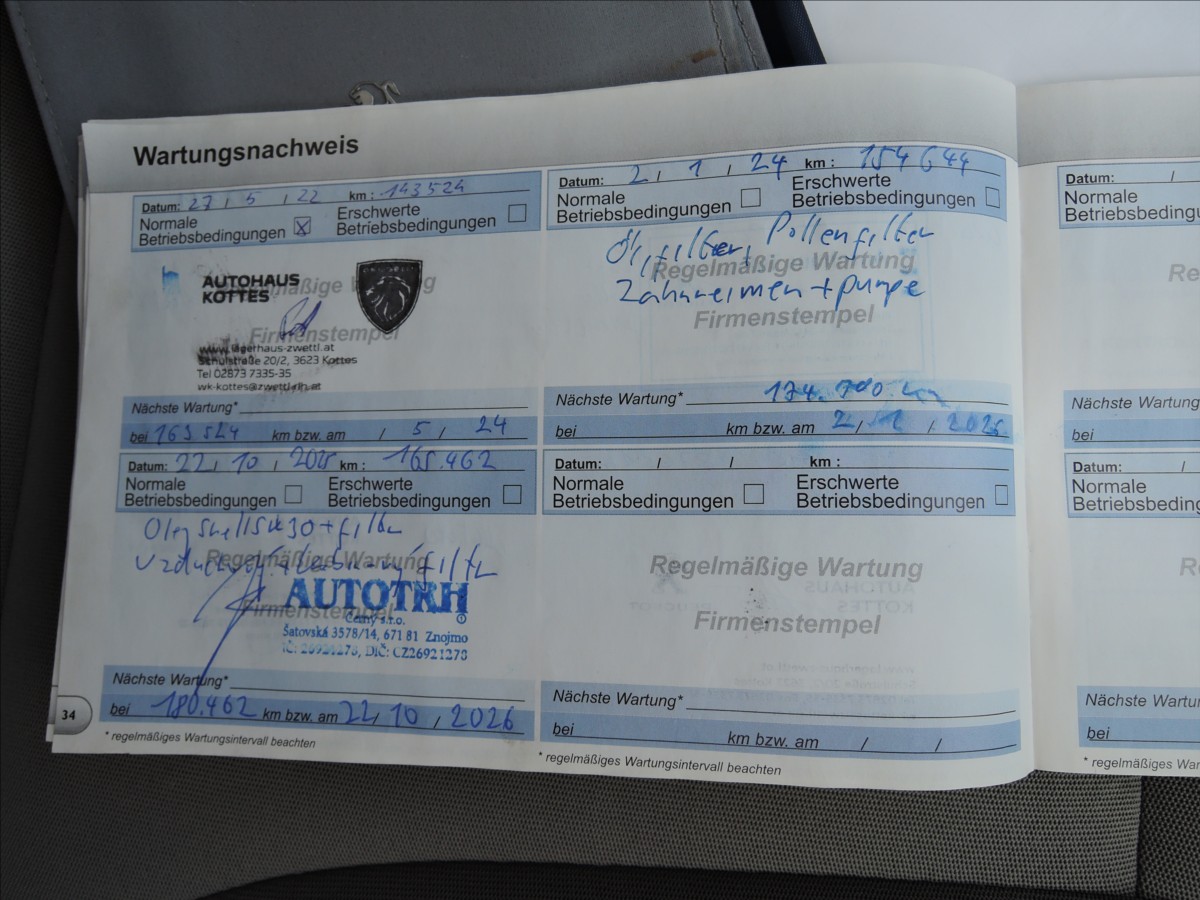 Wartungsnachweis
Datum: 27 / 5 / 22 km: 143524
Normale
Betriebsbedingungen ☒
Erschwerte
Betriebsbedingungen ☐
AUTOHAUS
KOTTES
PEUGEOT
Regelmäßige Wartung
Firmenstempel
www.lagerhaus-zwettl.at
Schulstraße 20/2, 3623 Kottes
Tel 02873 7335-35
wk-kottes@zwettl.rlh.at
Nächste Wartung*
bei 163524 km bzw. am / 5 / 24
Datum: 2 / 1 / 24 km: 154644
Normale
Betriebsbedingungen ☐
Erschwerte
Betriebsbedingungen ☐
Öl, filter, Pollenfilter
Regelmäßige Wartung
Zahnreimen + pumpe
Firmenstempel
Nächste Wartung* 174.700 km
bei km bzw. am 2 / / 2026
Datum: 22 / 10 / 2025 km: 165.462
Normale
Betriebsbedingungen ☐
Erschwerte
Betriebsbedingungen ☐
Olej shell 5w30 + filtr
Regelmäßige Wartung
filtr
AUTOTRH
Firmenstempel
Černý s.r.o.
Šatovská 3578/14, 671 81 Znojmo
IČ: 26921278, DIČ: CZ26921278
Nächste Wartung*
bei 180.462 km bzw. am 22 / 10 / 2026
* regelmäßiges Wartungsintervall beachten
34
Datum: / / km:
Normale
Betriebsbedingungen ☐
Erschwerte
Betriebsbedingungen ☐
Regelmäßige Wartung
Firmenstempel
Nächste Wartung*
bei km bzw. am / /
* regelmäßiges Wartungsintervall beachten
Datum: /
Normale
Betriebsbedingung
Re
Nächste Wartung
bei
Datum: /
Normale
Betriebsbedingung
R
F
Nächste Wartung
bei
* regelmäßiges Wart